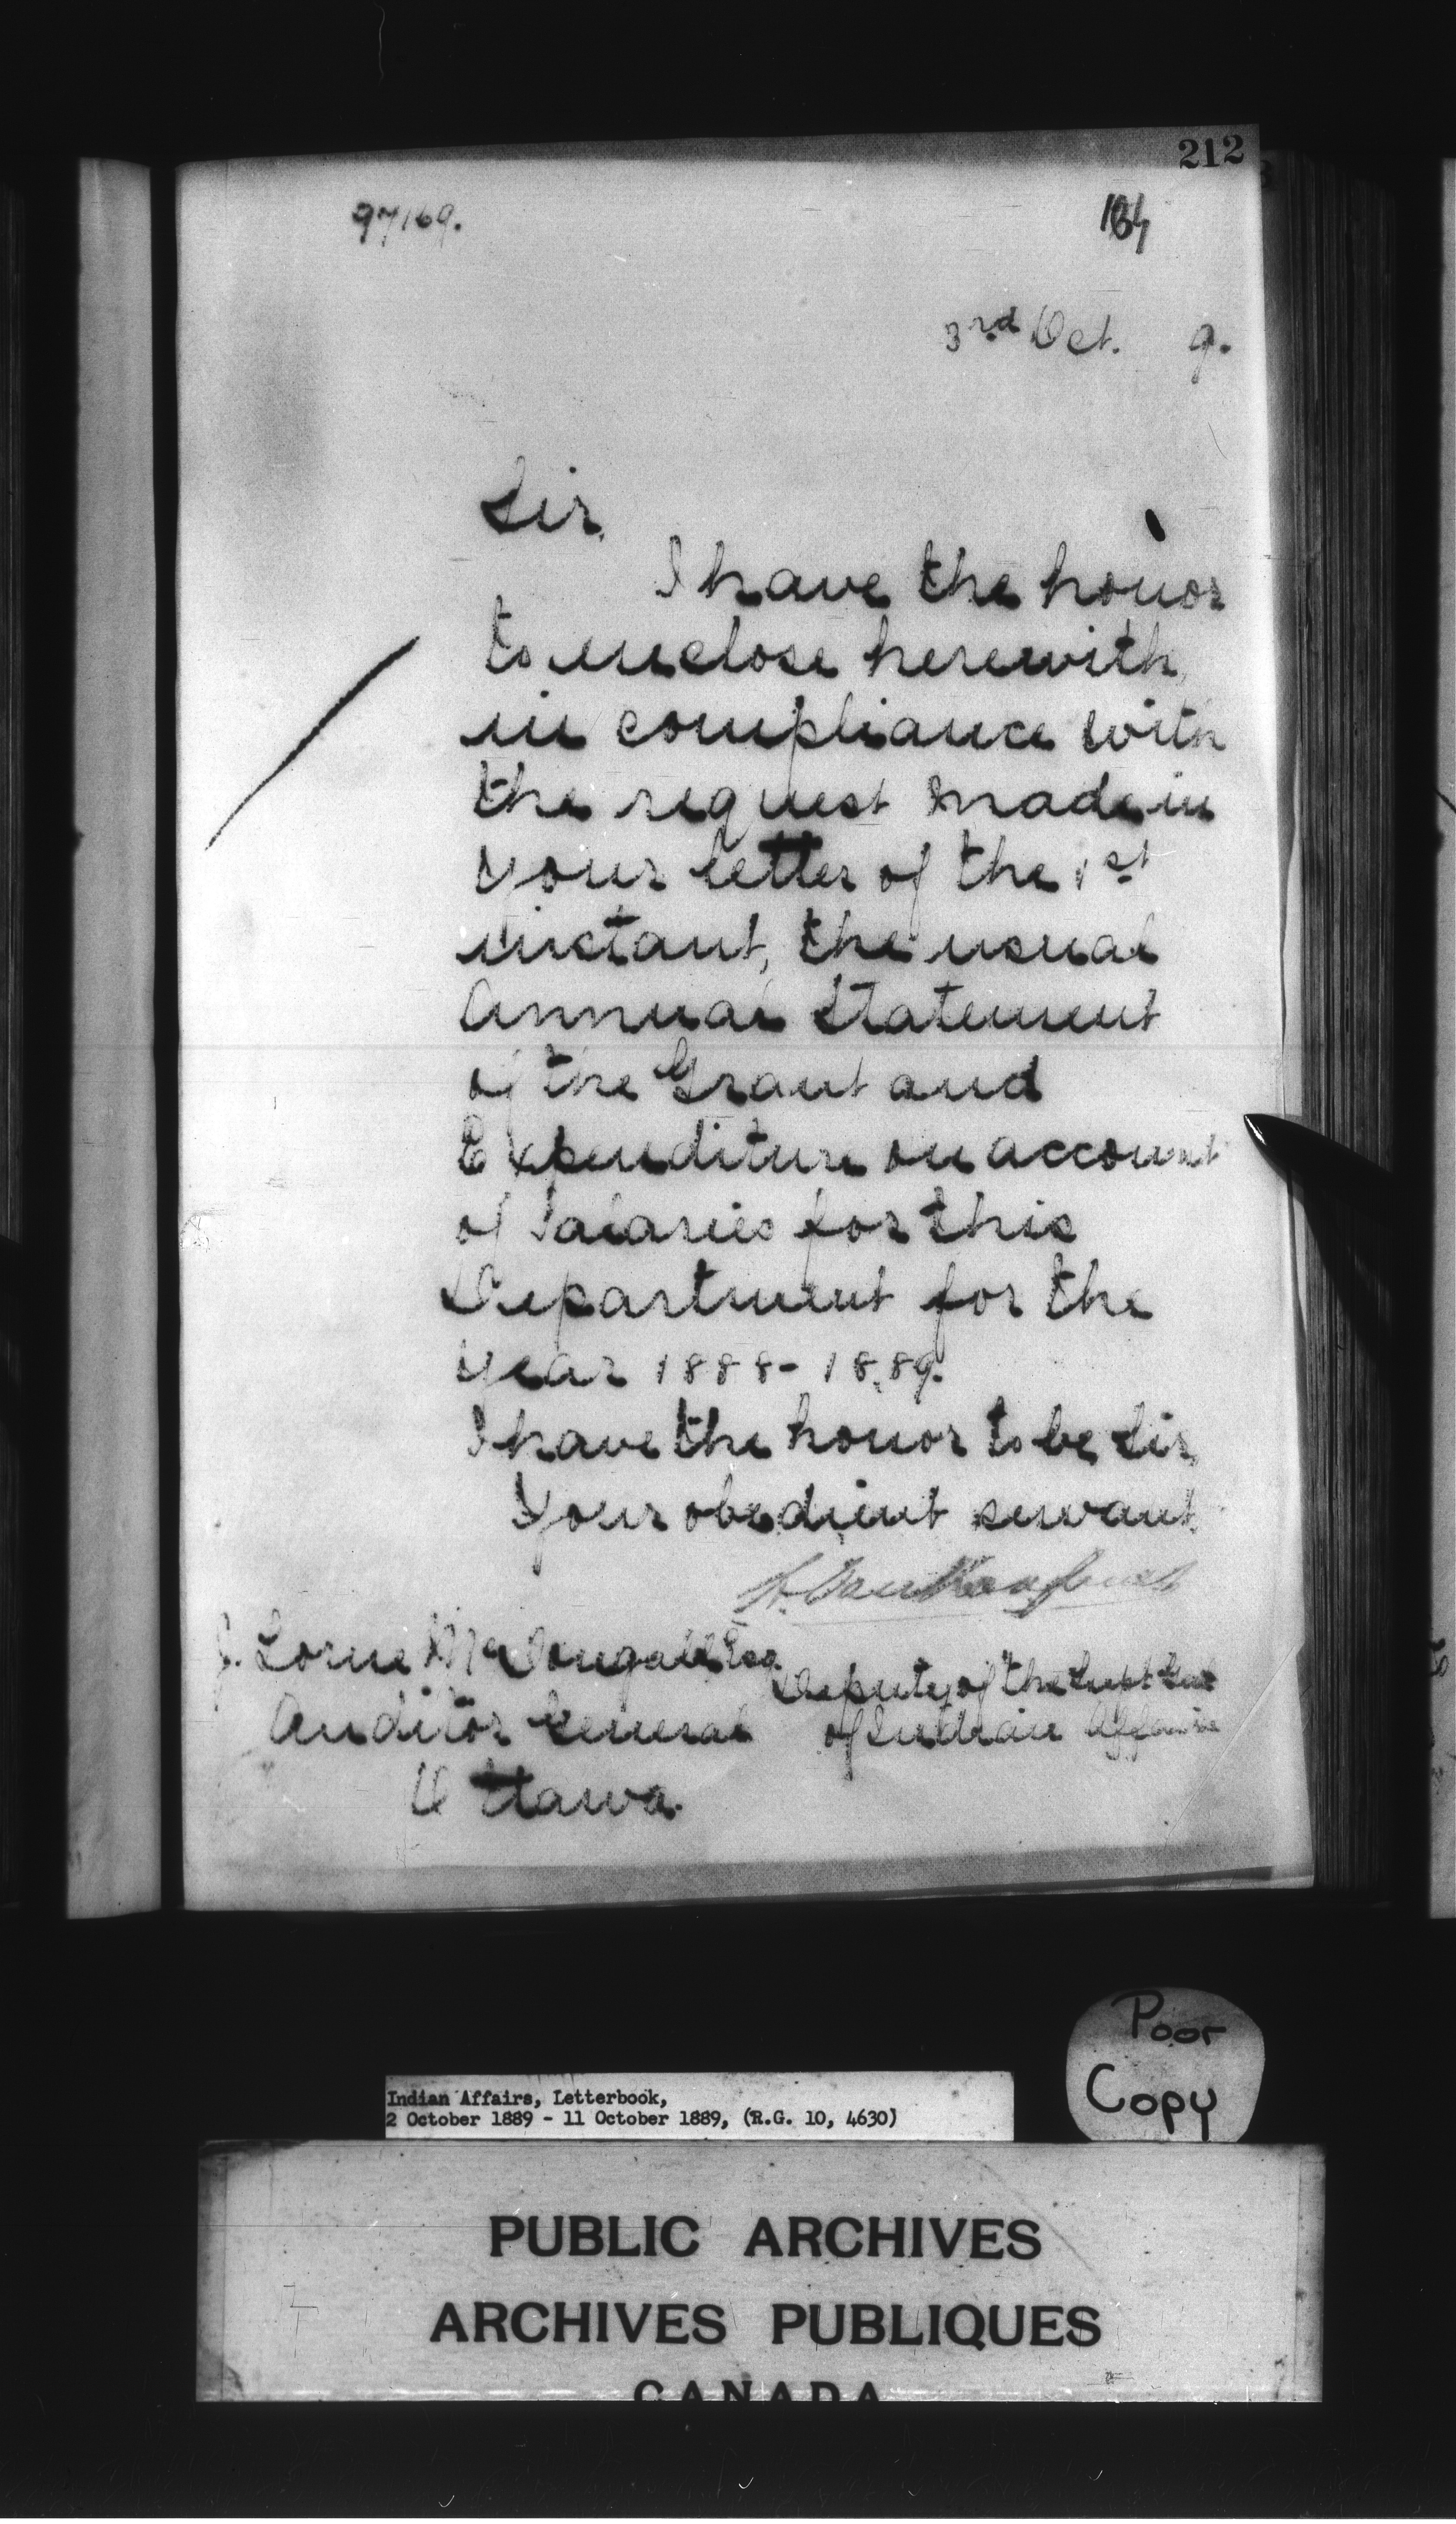 212
97169.
3rd Oct. 9.
Sir,
I have the honor
to enclose herewith,
in compliance with
the request made in
your letter of the 1st
instant, the usual
Annual Statement
of the Grant and
Expenditure on account
of Salaries for this
Department for the
year 1888-1889.
I have the honor to be Sir,
Your obedient servant,
L. Vankoughnet
J. Lorne McDougall Esq.
Deputy of the Supt Genl
Auditor General
of Indian Affairs
Ottawa.
Poor
Copy
Indian Affairs, Letterbook,
2 October 1889 - 11 October 1889, (R.G. 10, 4630)
PUBLIC ARCHIVES
ARCHIVES PUBLIQUES
CANADA